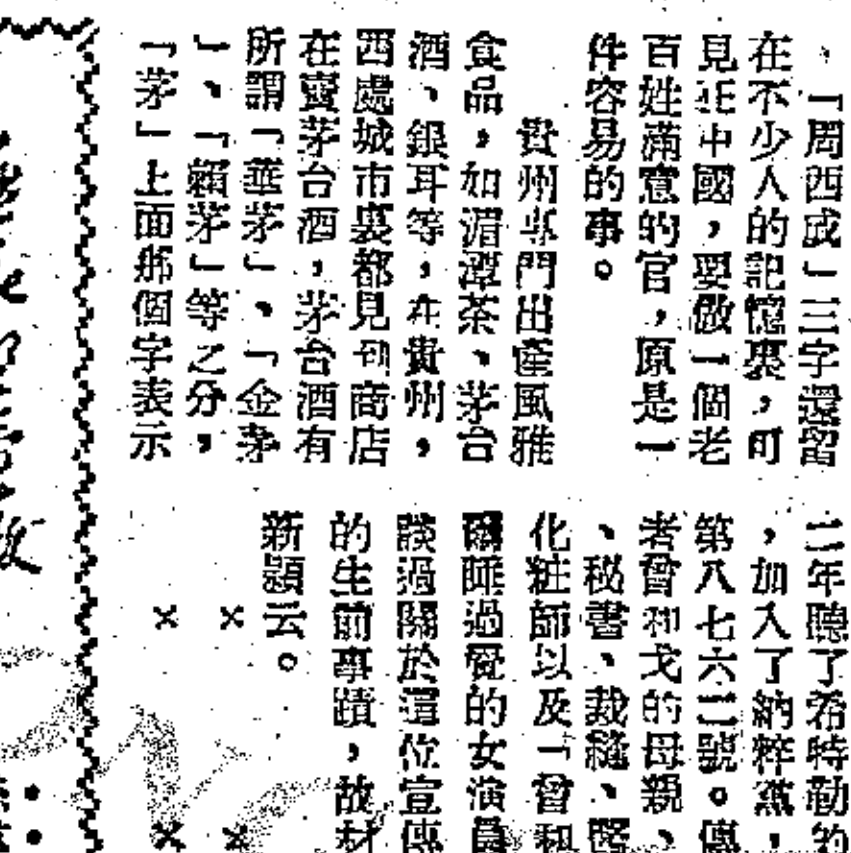 、「周西成」三字還留
在不少人的記憶裏，可
見在中國，要做一個老
百姓滿意的官，原是一
件容易的事。
貴州專門出產風雅
食品，如湄潭茶、茅台
酒、銀耳等，在貴州，
西處城市裏都見到商店
在賣茅台酒，茅台酒有
所謂「華茅」、「金茅
」、「賴茅」等之分，
「茅」上面那個字表示
二年聽了希特勒的
，加入了納粹黨，
第八七六二號。傳
者曾和戈的母親、
、秘書、裁縫、醫
化粧師以及「曾和
爾睡過覺的女演員
談過關於這位宣傳
的生前事蹟，故材
新穎云。
× ×
× ×